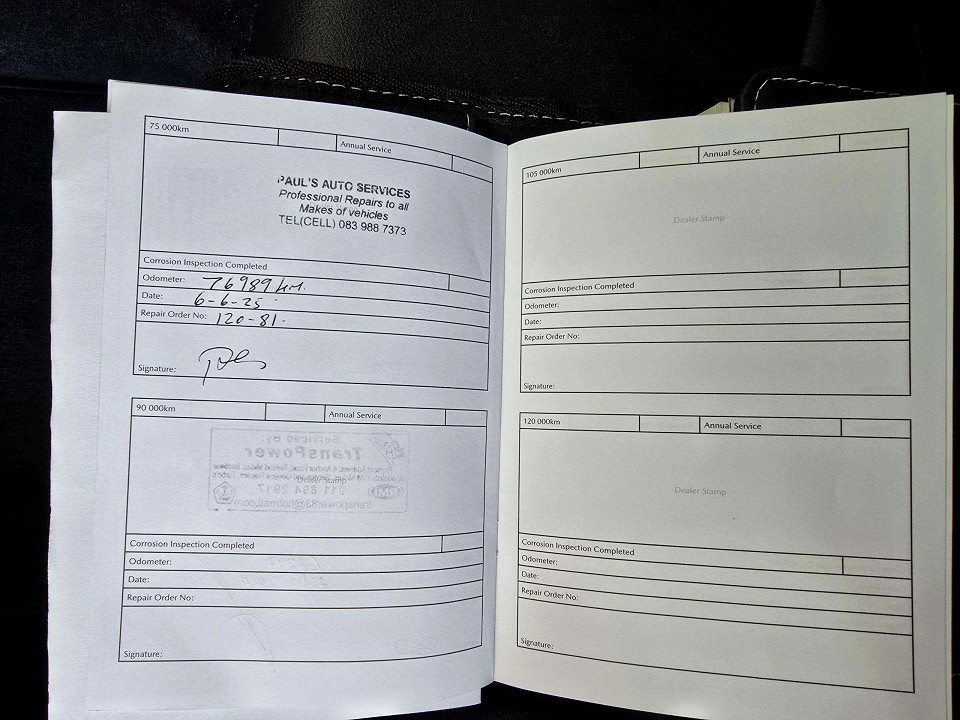 75 000km
Annual Service
PAUL'S AUTO SERVICES
Professional Repairs to all
Makes of vehicles
TEL(CELL) 083 988 7373
Corrosion Inspection Completed
Odometer: 76989 km.
Date: 6-6-25
Repair Order No: 120-81.
Signature:
90 000km
Annual Service
Serviced by:
TransPower
Dealer Stamp
011 894 2917
transpower83@hotmail.com
Corrosion Inspection Completed
Odometer:
Date:
Repair Order No:
Signature:
105 000km
Annual Service
Dealer Stamp
Corrosion Inspection Completed
Odometer:
Date:
Repair Order No:
Signature:
120 000km
Annual Service
Dealer Stamp
Corrosion Inspection Completed
Odometer:
Date:
Repair Order No:
Signature: